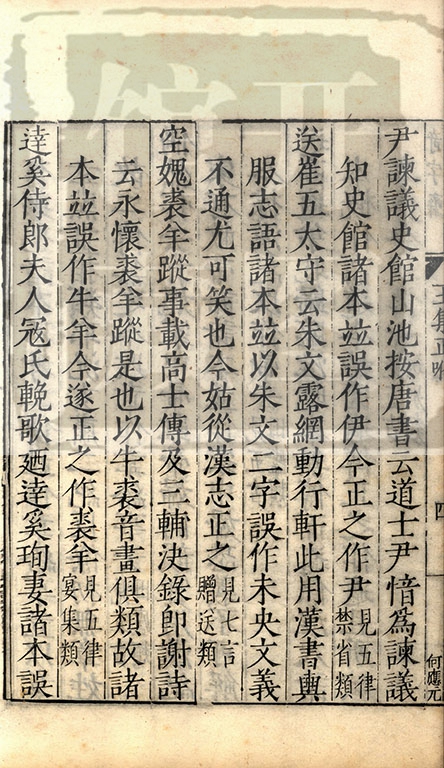 尹諫議史館山池按唐書云道士尹愔爲諫議
知史館諸本竝誤作伊今正之作尹見五律禁省類
送崔五太守云朱文露網動行軒此用漢書輿
服志語諸本竝以朱文二字誤作未央文義
不通尤可笑也今姑從漢志正之見七言贈送類
空媿裘羊蹤事載高士傳及三輔决錄卽謝詩
云永懷裘羊蹤是也以牛裘音畫俱類故諸
本竝誤作牛羊今遂正之作裘羊見五律宴集類
逹奚侍郎夫人寇氏輓歌廼逹奚珣妻諸本誤
四
何應元